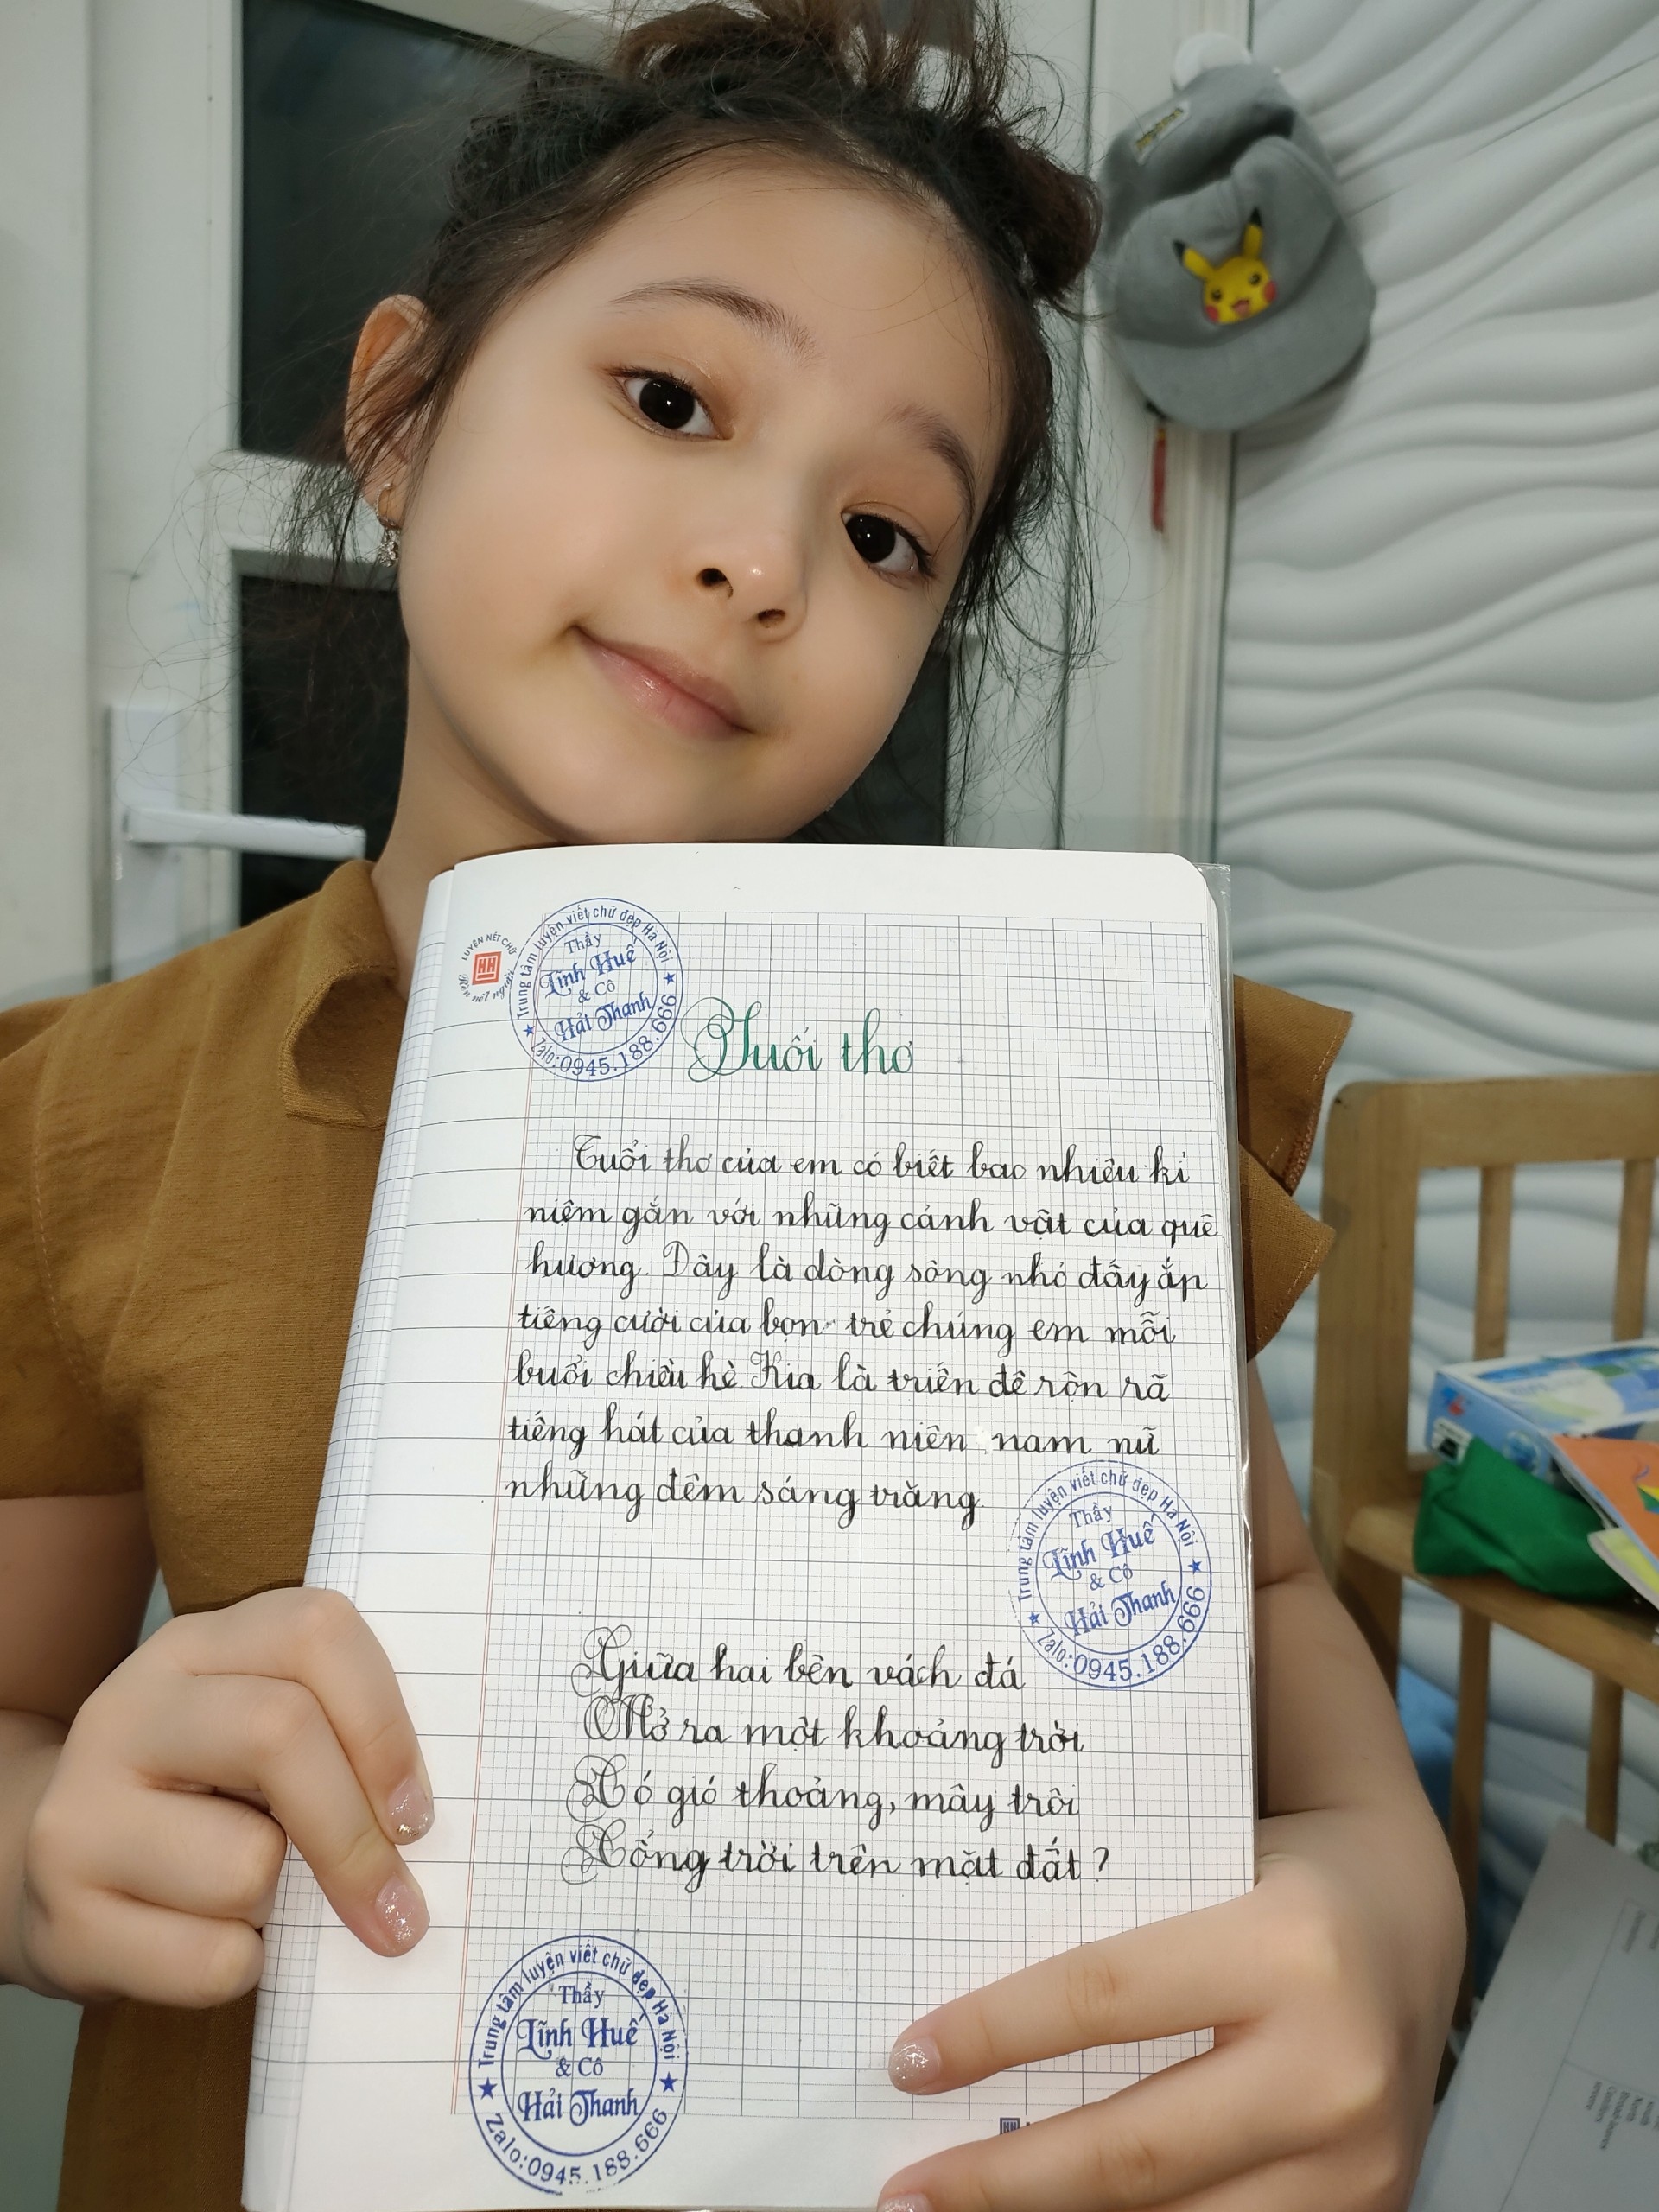 LUYỆN NÉT CHỮ
Rèn nết người
Trung tâm luyện viết chữ đẹp Hà Nội
Thầy
Lĩnh Huế
& Cô
Hải Thanh
Zalo:0945.188.666
Tuổi thơ
Tuổi thơ của em có biết bao nhiêu kỉ
niệm gắn với những cảnh vật của quê
hương. Đây là dòng sông nhỏ đầy ắp
tiếng cười của bọn trẻ chúng em mỗi
buổi chiều hè. Kia là triền đê rộn rã
tiếng hát của thanh niên nam nữ
những đêm sáng trăng.
Trung tâm luyện viết chữ đẹp Hà Nội
Thầy
Lĩnh Huế
& Cô
Hải Thanh
Zalo:0945.188.666
Giữa hai bên vách đá
Mở ra một khoảng trời
Có gió thoảng, mây trôi
Cổng trời trên mặt đất?
Trung tâm luyện viết chữ đẹp Hà Nội
Thầy
Lĩnh Huế
& Cô
Hải Thanh
Zalo:0945.188.666